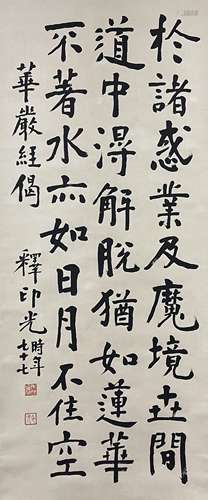 於諸惑業及魔境世間
道中得解脫猶如蓮華
不著水亦如日月不住空
華嚴經偈
釋印光時年七十七